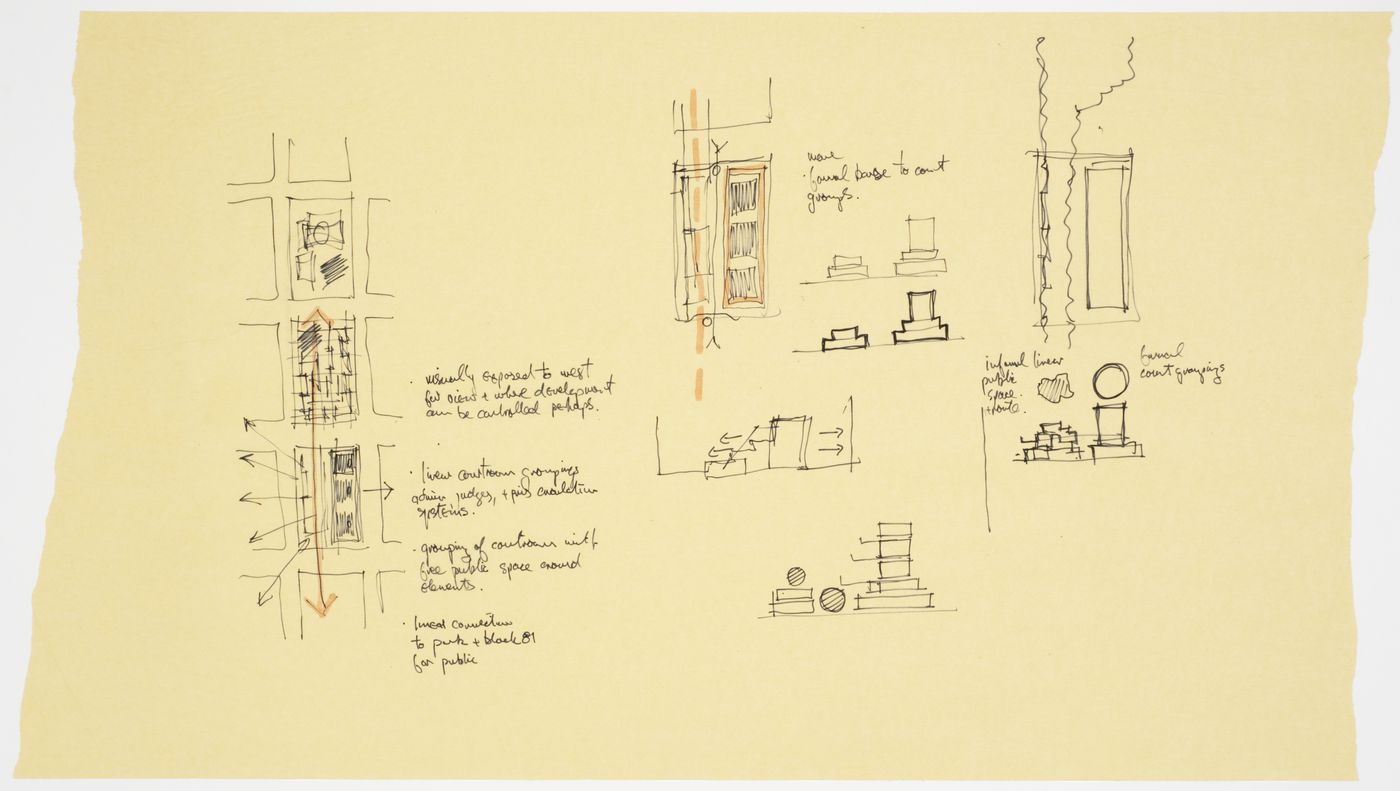 · visually exposed to west
for view + where development
can be controlled perhaps.
· linear courtroom groupings
admin judges, + priv circulation
systems.
· grouping of courtrooms with
free public space around
elements.
· linear connection
to park + block 81
for public
more
· formal base to court
groups.
informal linear
public
space.
+ route.
formal
court groupings